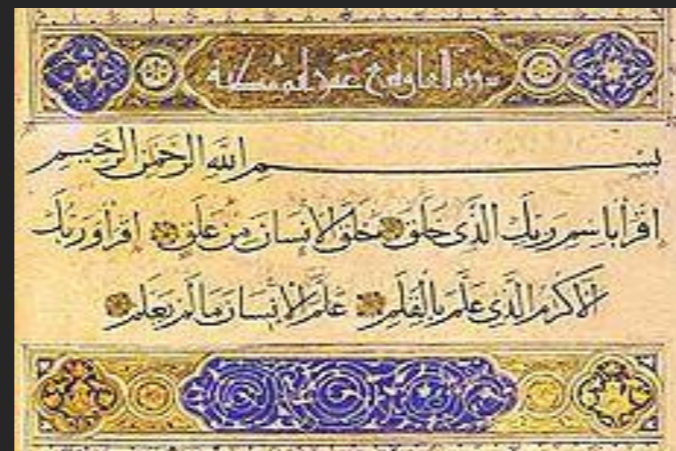 سورة العلق تسع عشر آية مكية
بسم الله الرحمن الرحيم
اِقْرَأْ بِاسْمِ رَبِّكَ الَّذِى خَلَقَ خَلَقَ الْاِنْسَانَ مِنْ عَلَقٍ اِقْرَأْ وَرَبُّكَ
الْاَكْرَمُ الَّذِى عَلَّمَ بِالْقَلَمِ عَلَّمَ الْاِنْسَانَ مَا لَمْ يَعْلَمْ